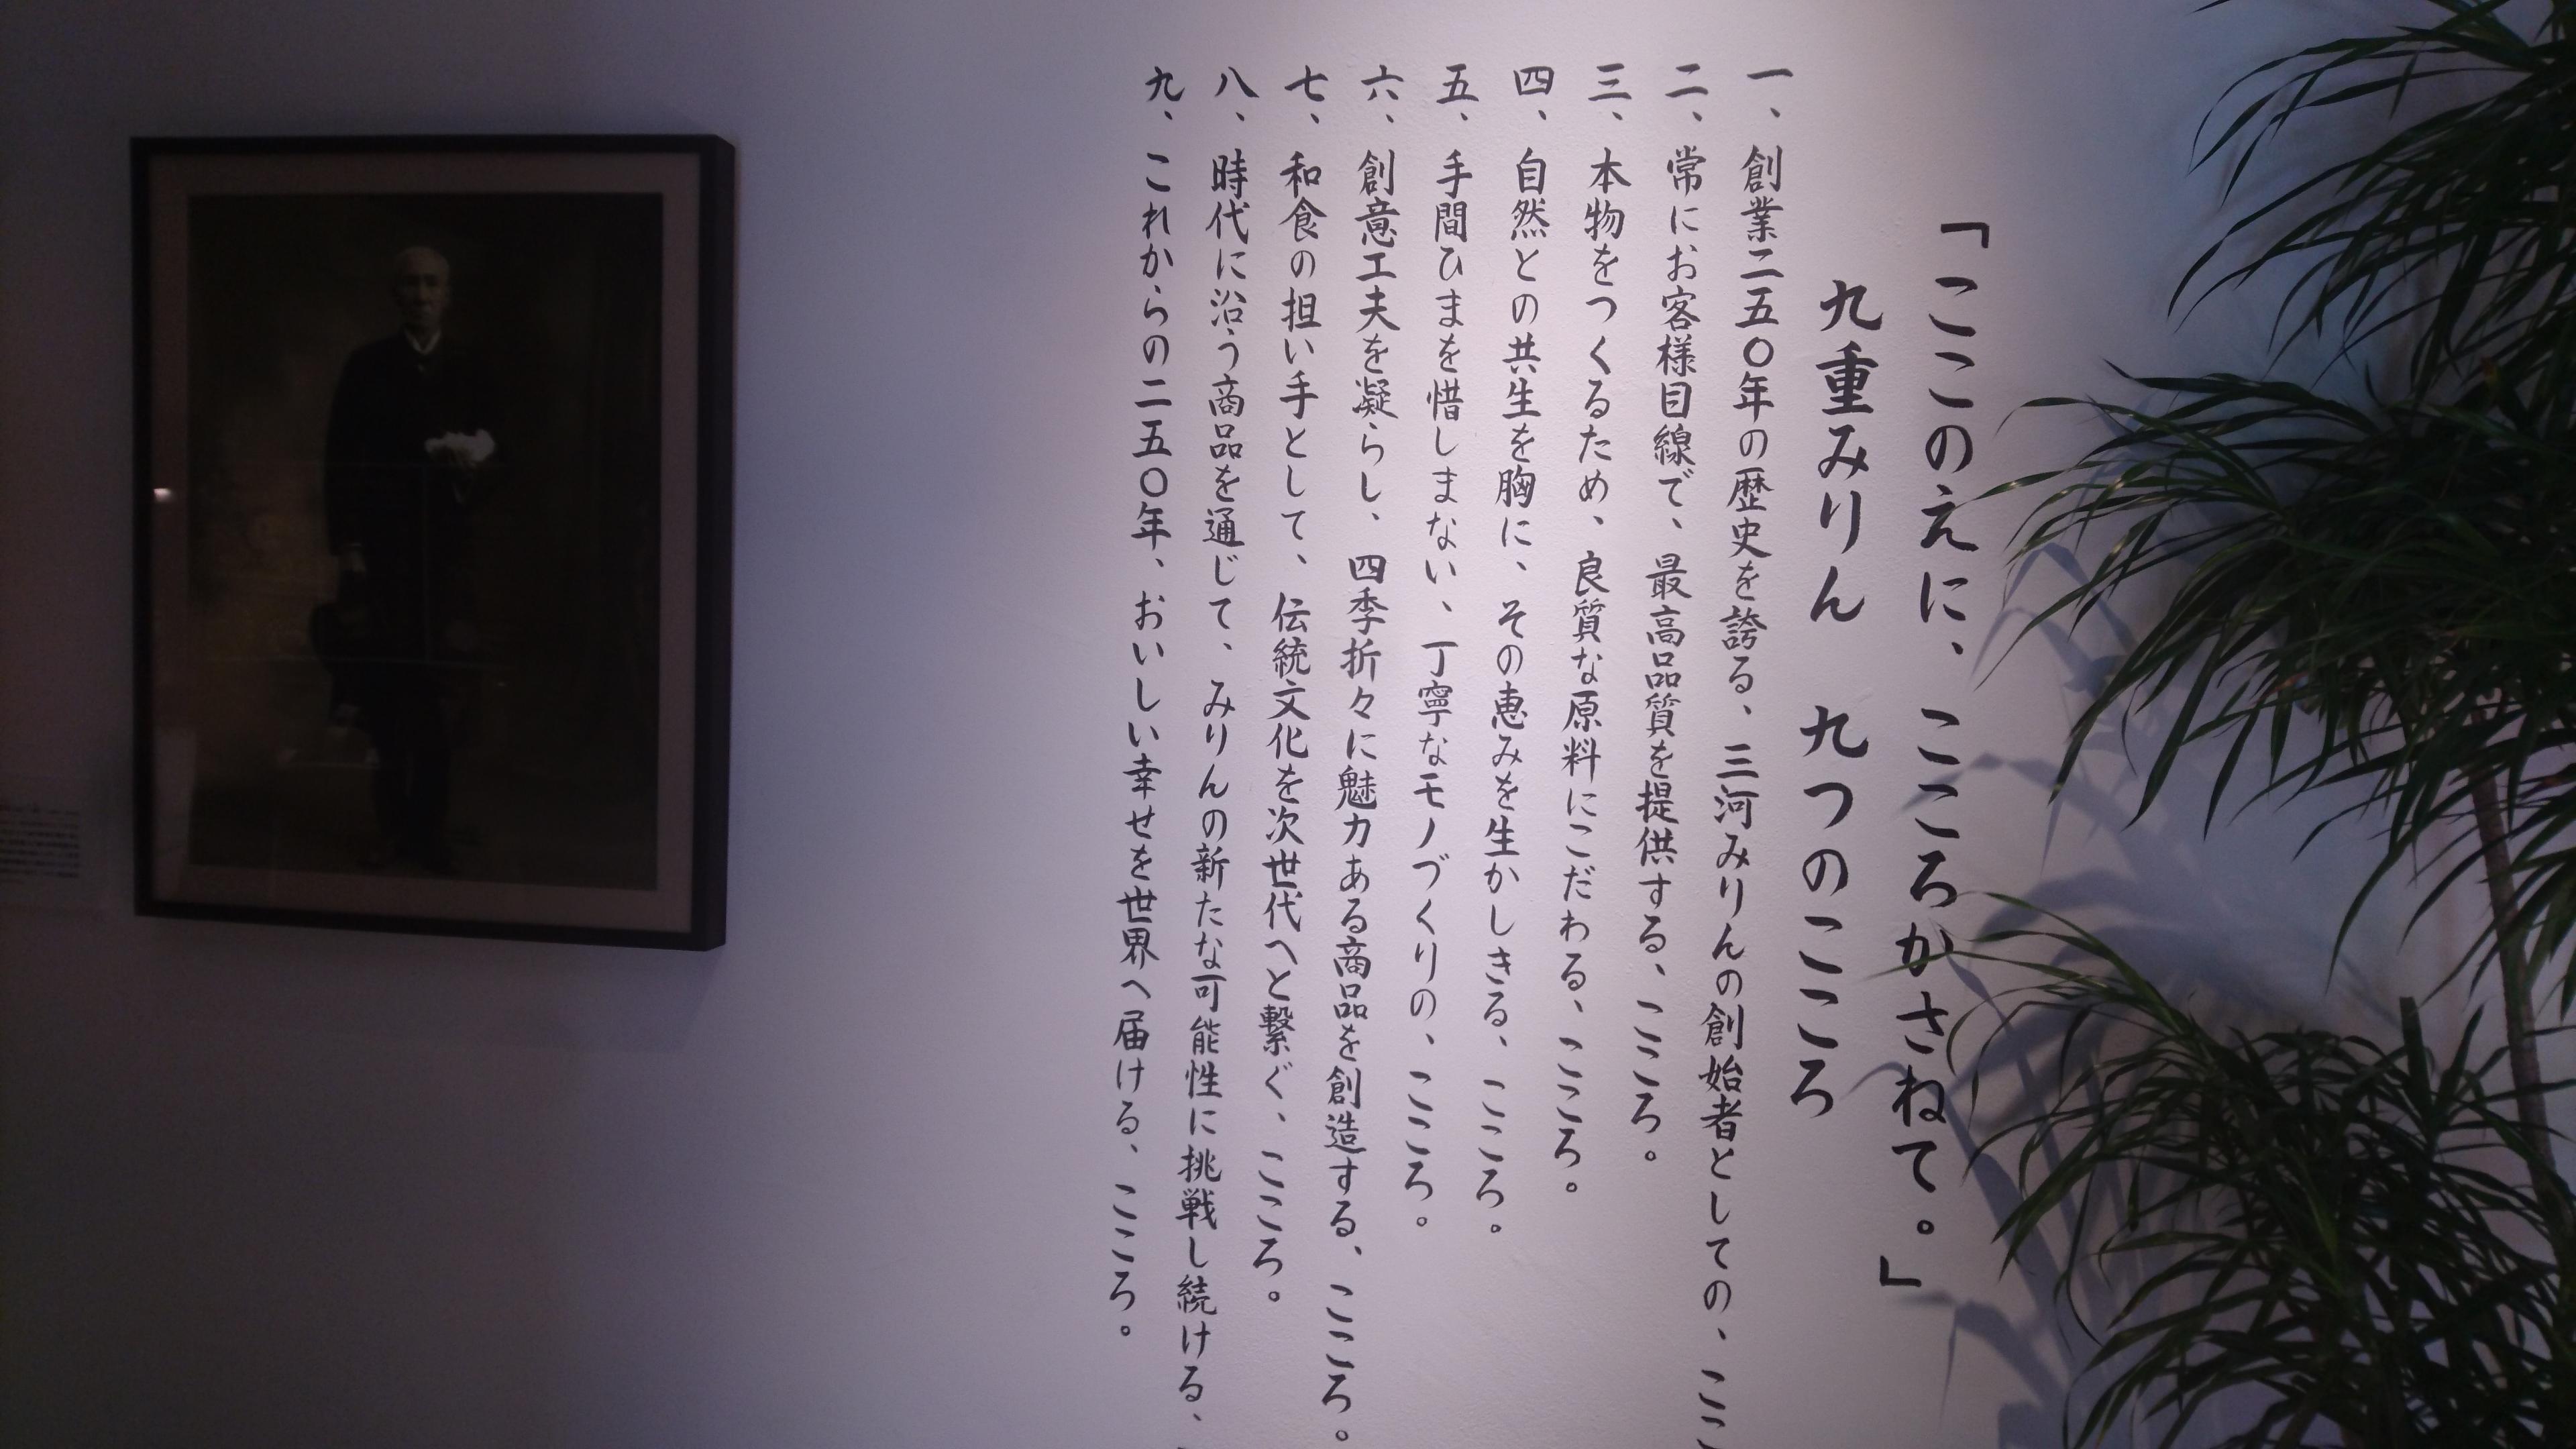 「ここのえに、こころかさねて。」
九重みりん 九つのこころ
一、創業二五〇年の歴史を誇る、三河みりんの創始者としての、ここ
二、常にお客様目線で、最高品質を提供する、こころ。
三、本物をつくるため、良質な原料にこだわる、こころ。
四、自然との共生を胸に、その恵みを生かしきる、こころ。
五、手間ひまを惜しまない、丁寧なモノづくりの、こころ。
六、創意工夫を凝らし、四季折々に魅力ある商品を創造する、こころ。
七、和食の担い手として、伝統文化を次世代へと繋ぐ、こころ。
八、時代に沿う商品を通じて、みりんの新たな可能性に挑戦し続ける、
九、これからの二五〇年、おいしい幸せを世界へ届ける、こころ。